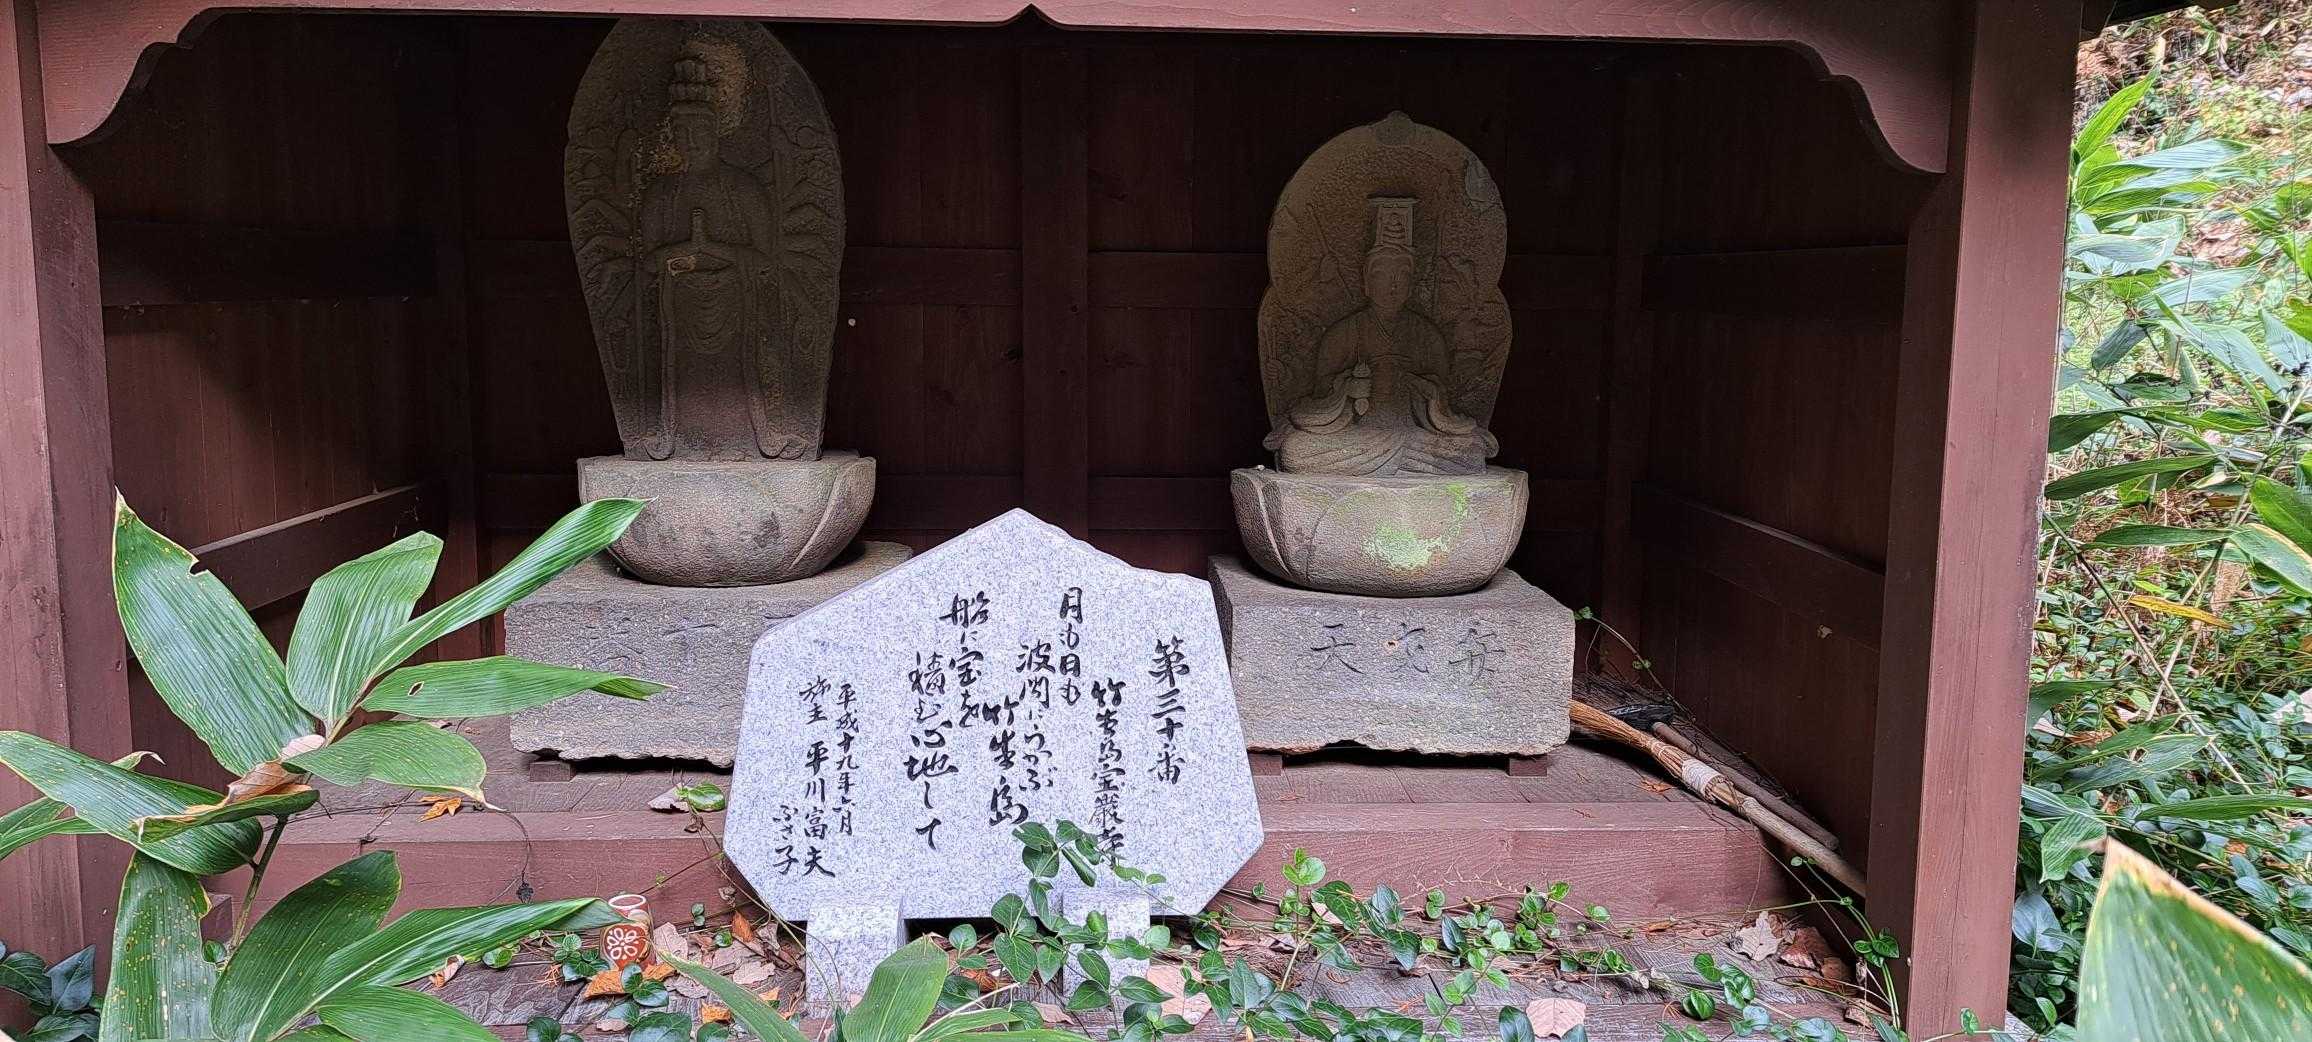 第三十番
竹生島宝厳寺
月も日も
波間にうかぶ
竹生島
船に宝を
積む心地して
平成十九年六月
施主 平川富夫
ふさ子
弁才天